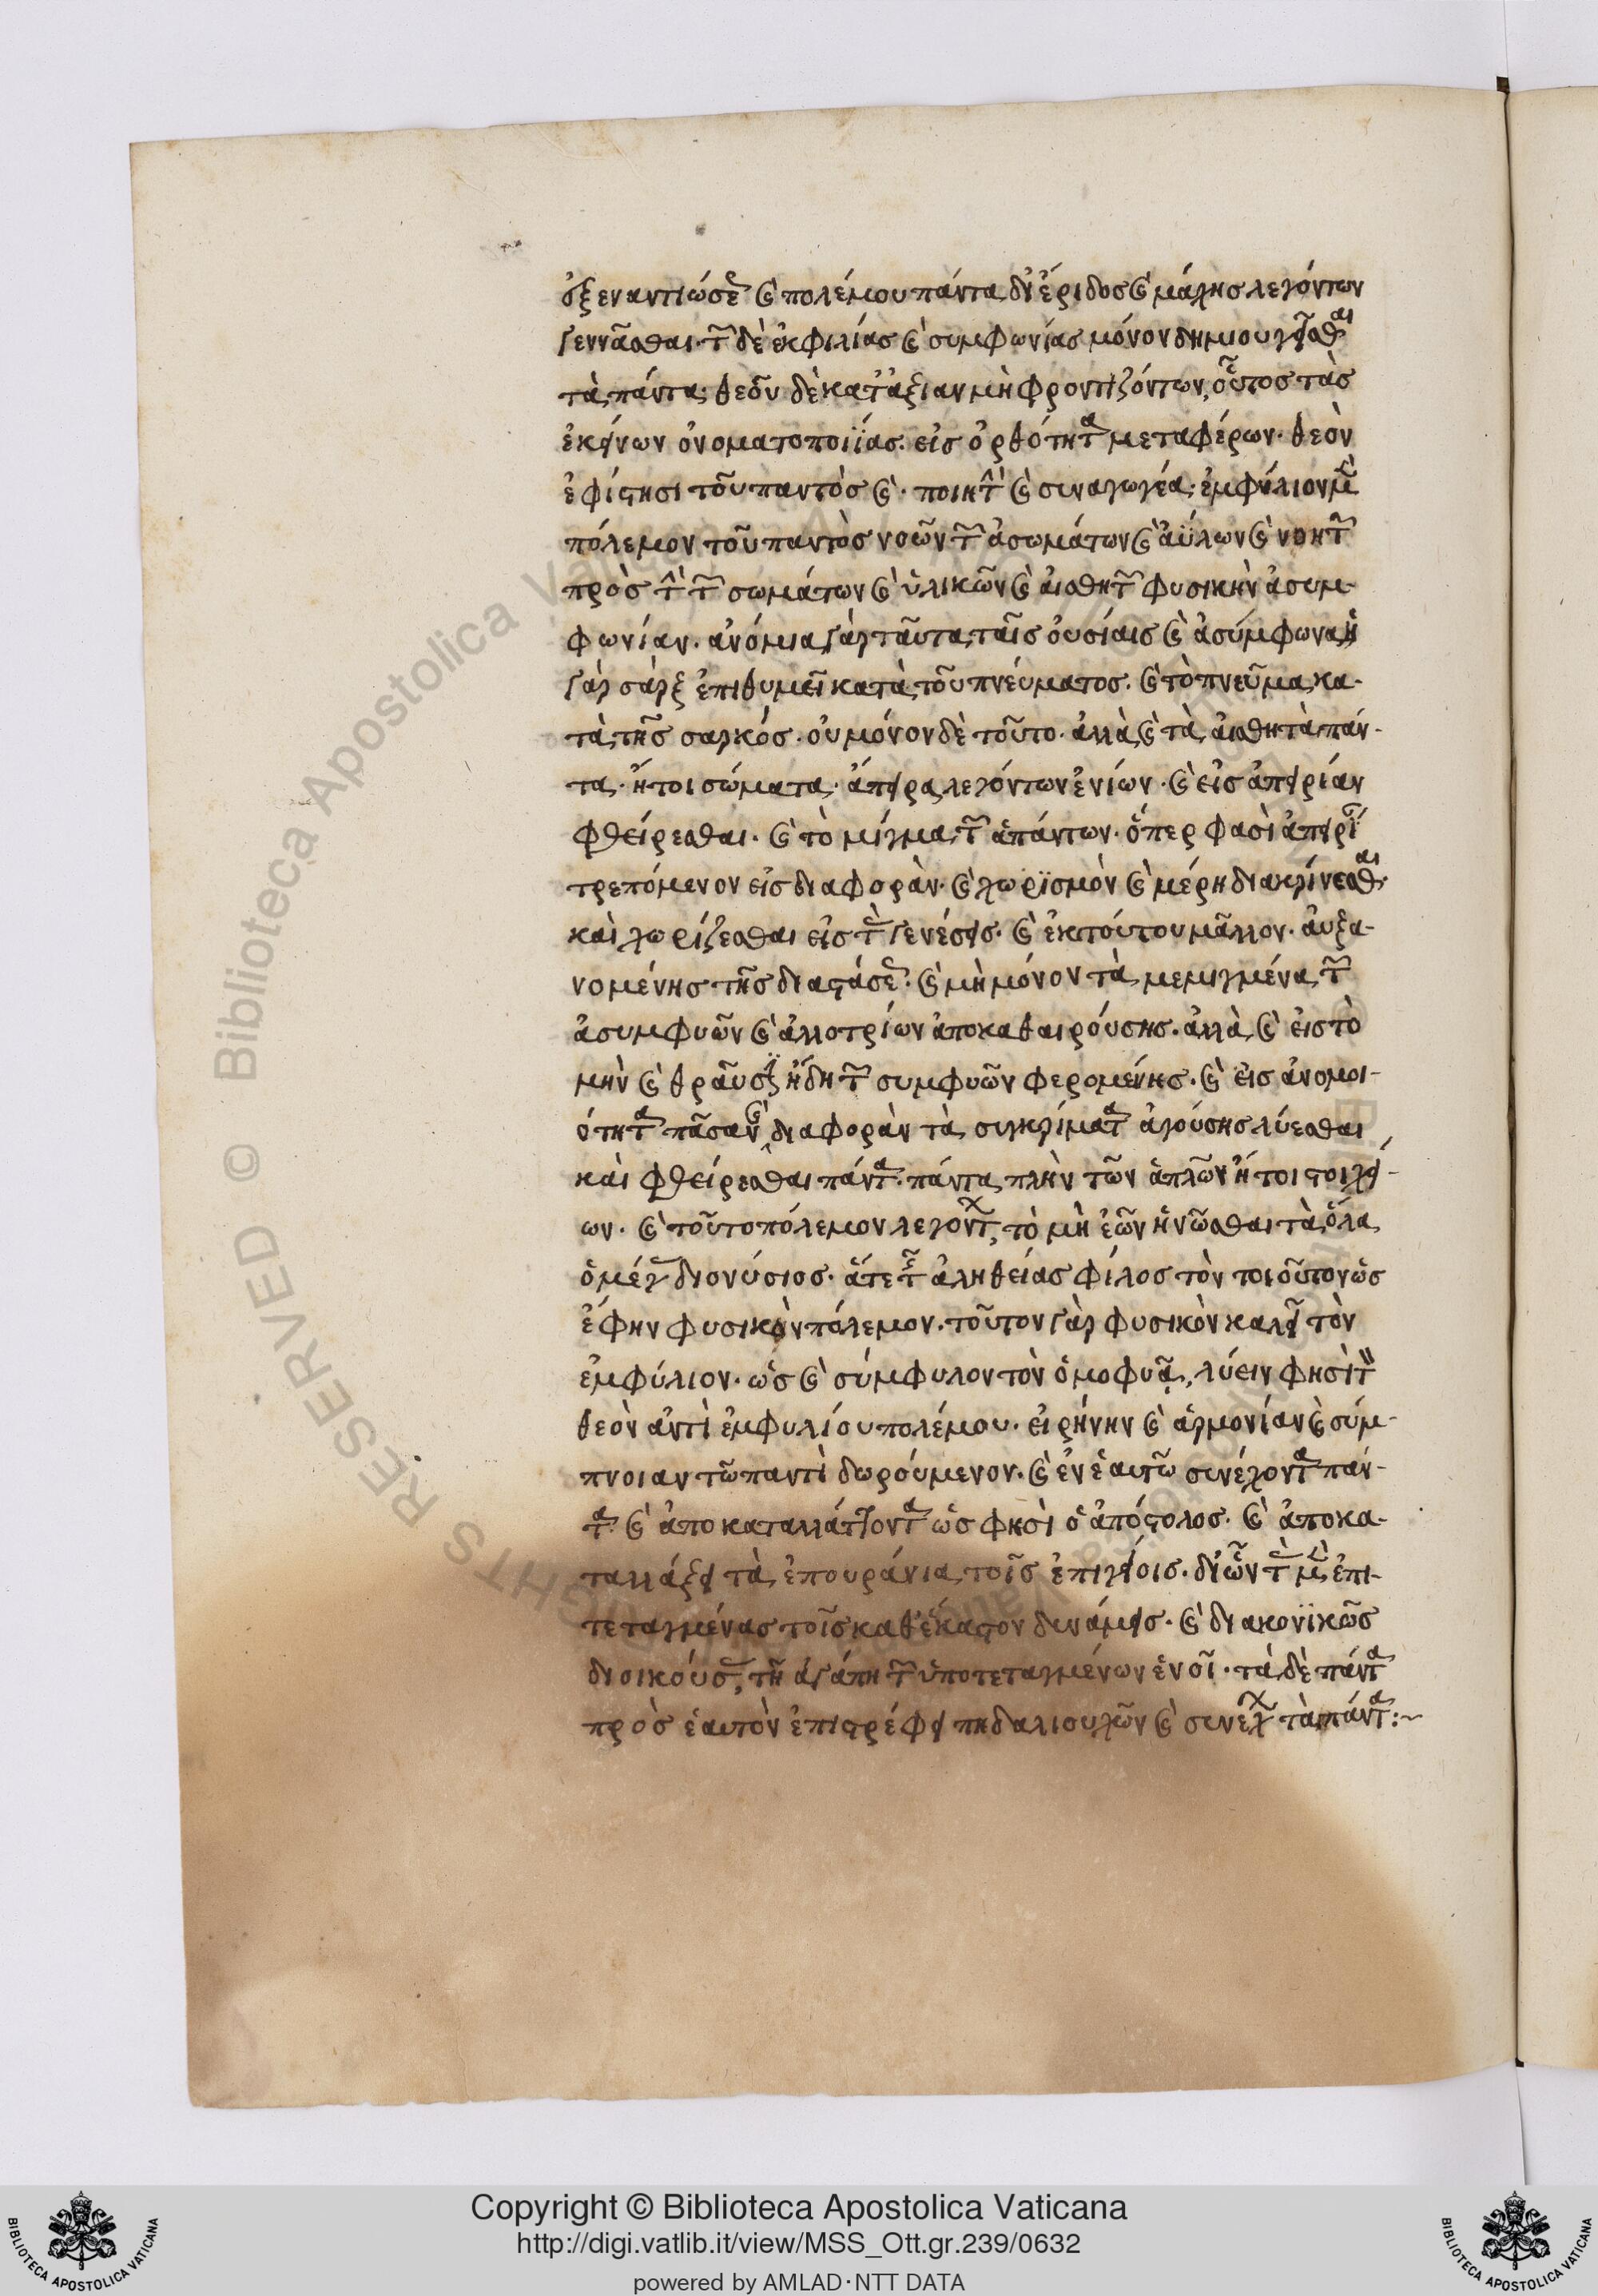 ὀξ εναντιώσε καὶ πολέμου πάντα δι' ἔριδος καὶ μάχης λεγόντων
γεννᾶσθαι· τ δὲ ἐκ φιλίας καὶ συμφωνίας μόνον δημιουργεῖσθαι
τὰ πάντα· θεοῦ δὲ κατ' ἀξίαν μὴ φροντιζόντων, οὗτος τὰς
ἐκείνων ὀνοματοποιΐας. εἰς ὀρθότητα μεταφέρων. θεὸν
ἐφίστησι τοῦ παντὸς καὶ· ποιητ καὶ συναγωγέα· ἐμφύλιον μ
πόλεμον τοῦ παντὸς νοῶν τ ἀσωμάτων καὶ ἀΰλων καὶ νοητ
πρὸς τ τ σωμάτων καὶ ὑλικῶν καὶ αἰσθητ φυσικὴν ἀσυμ-
φωνίαν. ἀνόμια γὰρ ταῦτα ταῖς οὐσίαις καὶ ἀσύμφωνα ἡ
γὰρ σὰρξ ἐπιθυμεῖ κατὰ τοῦ πνεύματος. καὶ τὸ πνεῦμα κα-
τὰ τῆς σαρκός. οὐ μόνον δὲ τοῦτο. ἀλλὰ καὶ τὰ αἰσθητὰ πάν-
τα. ἤτοι σώματα. ἄπειρα λεγόντων ἐνίων. καὶ εἰς ἀπειρίαν
φθείρεσθαι. καὶ τὸ μίγμα τ ἁπάντων. ὅπερ φασὶ ἀπειρί
τρεπόμενον εἰς διαφορὰν. καὶ χωρϊσμὸν καὶ μέρη διακρίνεσθαι.
καὶ χωρίζεσθαι εἰς τ γενέσεις. καὶ ἐκ τούτου μᾶλλον. αὐξα-
νομένης τῆς διαστάσε. καὶ μὴ μόνον τὰ μεμιγμένα τ
ἀσυμφυῶν καὶ ἀλλοτρίων ἀποκαθαιρούσης. ἀλλὰ καὶ εἰς τὸ
μὴν καὶ θραῦσ ἤδη τ συμφυῶν φερομένης. καὶ εἰς ἀνομοι-
ότητα πᾶσαν καὶ διαφορὰν τὰ συγκρίματα ἀγούσης λύεσθαι
καὶ φθείρεσθαι πάντα. πάντα πλὴν τῶν ἁπλῶν ἤτοι στοιχεί-
ων. καὶ τοῦτο πόλεμον λεγοντ, τὸ μὴ ἐῶν ἡνῶσθαι τὰ ὅλα
ὁ μέγ διονύσιος. ἅτε τ ἀληθείας φίλος τὸν τοιοῦτον ὡς
ἔφην φυσικὸν πόλεμον. τοῦτον γὰρ φυσικὸν καλεῖ τὸν
ἐμφύλιον. ὡς καὶ σύμφυλον τὸν ὁμοφυᾶ, λύειν φησὶ τ
θεὸν ἀντὶ ἐμφυλίου πολέμου. εἰρήνην καὶ ἁρμονίαν καὶ σύμ-
πνοιαν τῶ παντὶ δωρούμενον. καὶ ἐν ἑαυτῶ συνέχοντα πάν-
τα. καὶ ἀποκαταλλάττοντα ὡς φησὶ ὁ ἀπόστολος. καὶ ἀποκα-
ταλλάξει τὰ ἐπουράνια τοῖς ἐπιγείοις. δι' ὧν τ μ ἐπι-
τεταγμένας τοῖς καθέκαστον δυνάμεις. καὶ διακονϊκῶς
διοικούσ, τῆ ἀγάπη τ ὑποτεταγμένων ἑνοῖ. τὰ δὲ πάντα
πρὸς ἑαυτὸν ἐπιστρέφει πηδαλιουχῶν καὶ συνεχ τὰ πάντα:~
Copyright © Biblioteca Apostolica Vaticana
http://digi.vatlib.it/view/MSS_Ott.gr.239/0632
powered by AMLAD·NTT DATA
BIBLIOTECA APOSTOLICA VATICANA
BIBLIOTECA APOSTOLICA VATICANA